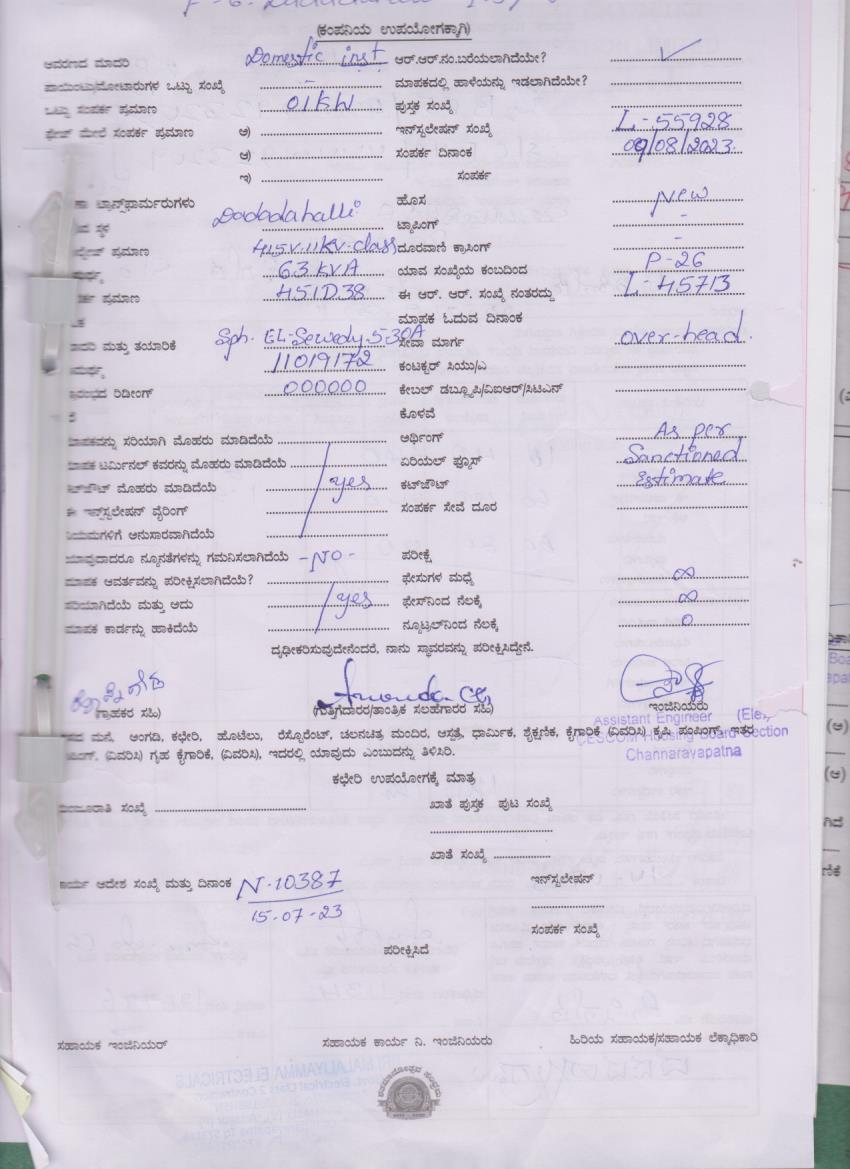 (ಕಂಪನಿಯ ಉಪಯೋಗಕ್ಕಾಗಿ)
ಆವರಣದ ಮಾದರಿ Domestic inst ಆರ್.ಆರ್.ನಂ.ಬರೆಯಲಾಗಿದೆಯೇ? ✓
ಪಾಯಿಂಟು/ಮೋಟಾರುಗಳ ಒಟ್ಟು ಸಂಖ್ಯೆ - ಮಾಪಕದಲ್ಲಿ ಹಾಳೆಯನ್ನು ಇಡಲಾಗಿದೆಯೇ?
ಒಟ್ಟು ಸಂಪರ್ಕ ಪ್ರಮಾಣ 01KW ಪುಸ್ತಕ ಸಂಖ್ಯೆ
ಫೇಜ್ ಮೇಲೆ ಸಂಪರ್ಕ ಪ್ರಮಾಣ ಅ) ಇನ್‌ಸ್ಟಲೇಷನ್ ಸಂಖ್ಯೆ L-55928
ಆ) ಸಂಪರ್ಕ ದಿನಾಂಕ 09/08/2023
ಇ) ಸಂಪರ್ಕ
ಟ್ರಾನ್ಸ್‌ಫಾರ್ಮರುಗಳು ಹೊಸ New
ಸ್ಥಳ Dadadahalli ಟ್ಯಾಪಿಂಗ್ -
ಪ್ರಮಾಣ 415V.11KV-class ದೂರವಾಣಿ ಕ್ರಾಸಿಂಗ್ -
63 KVA ಯಾವ ಸಂಖ್ಯೆಯ ಕಂಬದಿಂದ P-26
ಪ್ರಮಾಣ 451D38 ಈ ಆರ್. ಆರ್. ಸಂಖ್ಯೆ ನಂತರದ್ದು L-45713
ಮಾಪಕ ಓದುವ ದಿನಾಂಕ
ಮತ್ತು ತಯಾರಿಕೆ Sph. EL-Sewedy 5-30A ಸೇವಾ ಮಾರ್ಗ over-head
11019172 ಕಂಟಕ್ಟರ್ ಸಿಯು/ಎ
ರಿಡೀಂಗ್ 000000 ಕೇಬಲ್ ಡಬ್ಲ್ಯೂಪಿ/ವಿಐಆರ್/ಸಿಟಿಎಸ್
ಕೊಳವೆ
ಮಾಪಕವನ್ನು ಸರಿಯಾಗಿ ಮೊಹರು ಮಾಡಿದೆಯೆ ಅರ್ಥಿಂಗ್ As per
ಮಾಪಕ ಟರ್ಮಿನಲ್ ಕವರನ್ನು ಮೊಹರು ಮಾಡಿದೆಯೆ ಏರಿಯಲ್ ಫ್ಯೂಸ್ Sanctioned
ಕಟ್‌ಔಟ್ ಮೊಹರು ಮಾಡಿದೆಯೆ yes ಕಟ್‌ಔಟ್ Estimate
ಈ ಇನ್‌ಸ್ಟಲೇಷನ್ ವೈರಿಂಗ್ ಸಂಪರ್ಕ ಸೇವೆ ದೂರ
ನಿಯಮಗಳಿಗೆ ಅನುಸಾರವಾಗಿದೆಯೆ
ಯಾವುದಾದರೂ ನ್ಯೂನತೆಗಳನ್ನು ಗಮನಿಸಲಾಗಿದೆಯೆ -NO- ಪರೀಕ್ಷೆ
ಮಾಪಕ ಆವರ್ತವನ್ನು ಪರೀಕ್ಷಿಸಲಾಗಿದೆಯೆ? ಫೇಸುಗಳ ಮಧ್ಯೆ ∞
ಸರಿಯಾಗಿದೆಯೆ ಮತ್ತು ಅದು yes ಫೇಸ್‌ನಿಂದ ನೆಲಕ್ಕೆ ∞
ಮಾಪಕ ಕಾರ್ಡನ್ನು ಹಾಕಿದೆಯೆ ನ್ಯೂಟ್ರಲ್‌ನಿಂದ ನೆಲಕ್ಕೆ 0
ದೃಢೀಕರಿಸುವುದೇನೆಂದರೆ, ನಾನು ಸ್ಥಾವರವನ್ನು ಪರೀಕ್ಷಿಸಿದ್ದೇನೆ.
(ಗ್ರಾಹಕರ ಸಹಿ) (ಗುತ್ತಿಗೆದಾರರ/ತಾಂತ್ರಿಕ ಸಲಹೆಗಾರರ ಸಹಿ) ಇಂಜಿನಿಯರು
Assistant Engineer (Ele),
CESCOM Housing Board Section
Channarayapatna
ಮನೆ, ಅಂಗಡಿ, ಕಛೇರಿ, ಹೊಟೆಲು, ರೆಸ್ಟೋರೆಂಟ್, ಚಲನಚಿತ್ರ ಮಂದಿರ, ಆಸ್ಪತ್ರೆ, ಧಾರ್ಮಿಕ, ಶೈಕ್ಷಣಿಕ, ಕೈಗಾರಿಕೆ (ವಿವರಿಸಿ) ಕೃಷಿ ಪಂಪಿಂಗ್, ಇತರ
(ವಿವರಿಸಿ) ಗೃಹ ಕೈಗಾರಿಕೆ, (ವಿವರಿಸಿ), ಇದರಲ್ಲಿ ಯಾವುದು ಎಂಬುದನ್ನು ತಿಳಿಸಿರಿ.
ಕಛೇರಿ ಉಪಯೋಗಕ್ಕೆ ಮಾತ್ರ
ಮಂಜೂರಾತಿ ಸಂಖ್ಯೆ ಖಾತೆ ಪುಸ್ತಕ ಪುಟ ಸಂಖ್ಯೆ
ಖಾತೆ ಸಂಖ್ಯೆ
ಕಾರ್ಯ ಆದೇಶ ಸಂಖ್ಯೆ ಮತ್ತು ದಿನಾಂಕ N-10387 ಇನ್‌ಸ್ಟಲೇಷನ್
15-07-23
ಸಂಪರ್ಕ ಸಂಖ್ಯೆ
ಪರೀಕ್ಷಿಸಿದೆ
ಸಹಾಯಕ ಇಂಜಿನಿಯರ್ ಸಹಾಯಕ ಕಾರ್ಯ ನಿ. ಇಂಜಿನಿಯರು ಹಿರಿಯ ಸಹಾಯಕ/ಸಹಾಯಕ ಲೆಕ್ಕಾಧಿಕಾರಿ